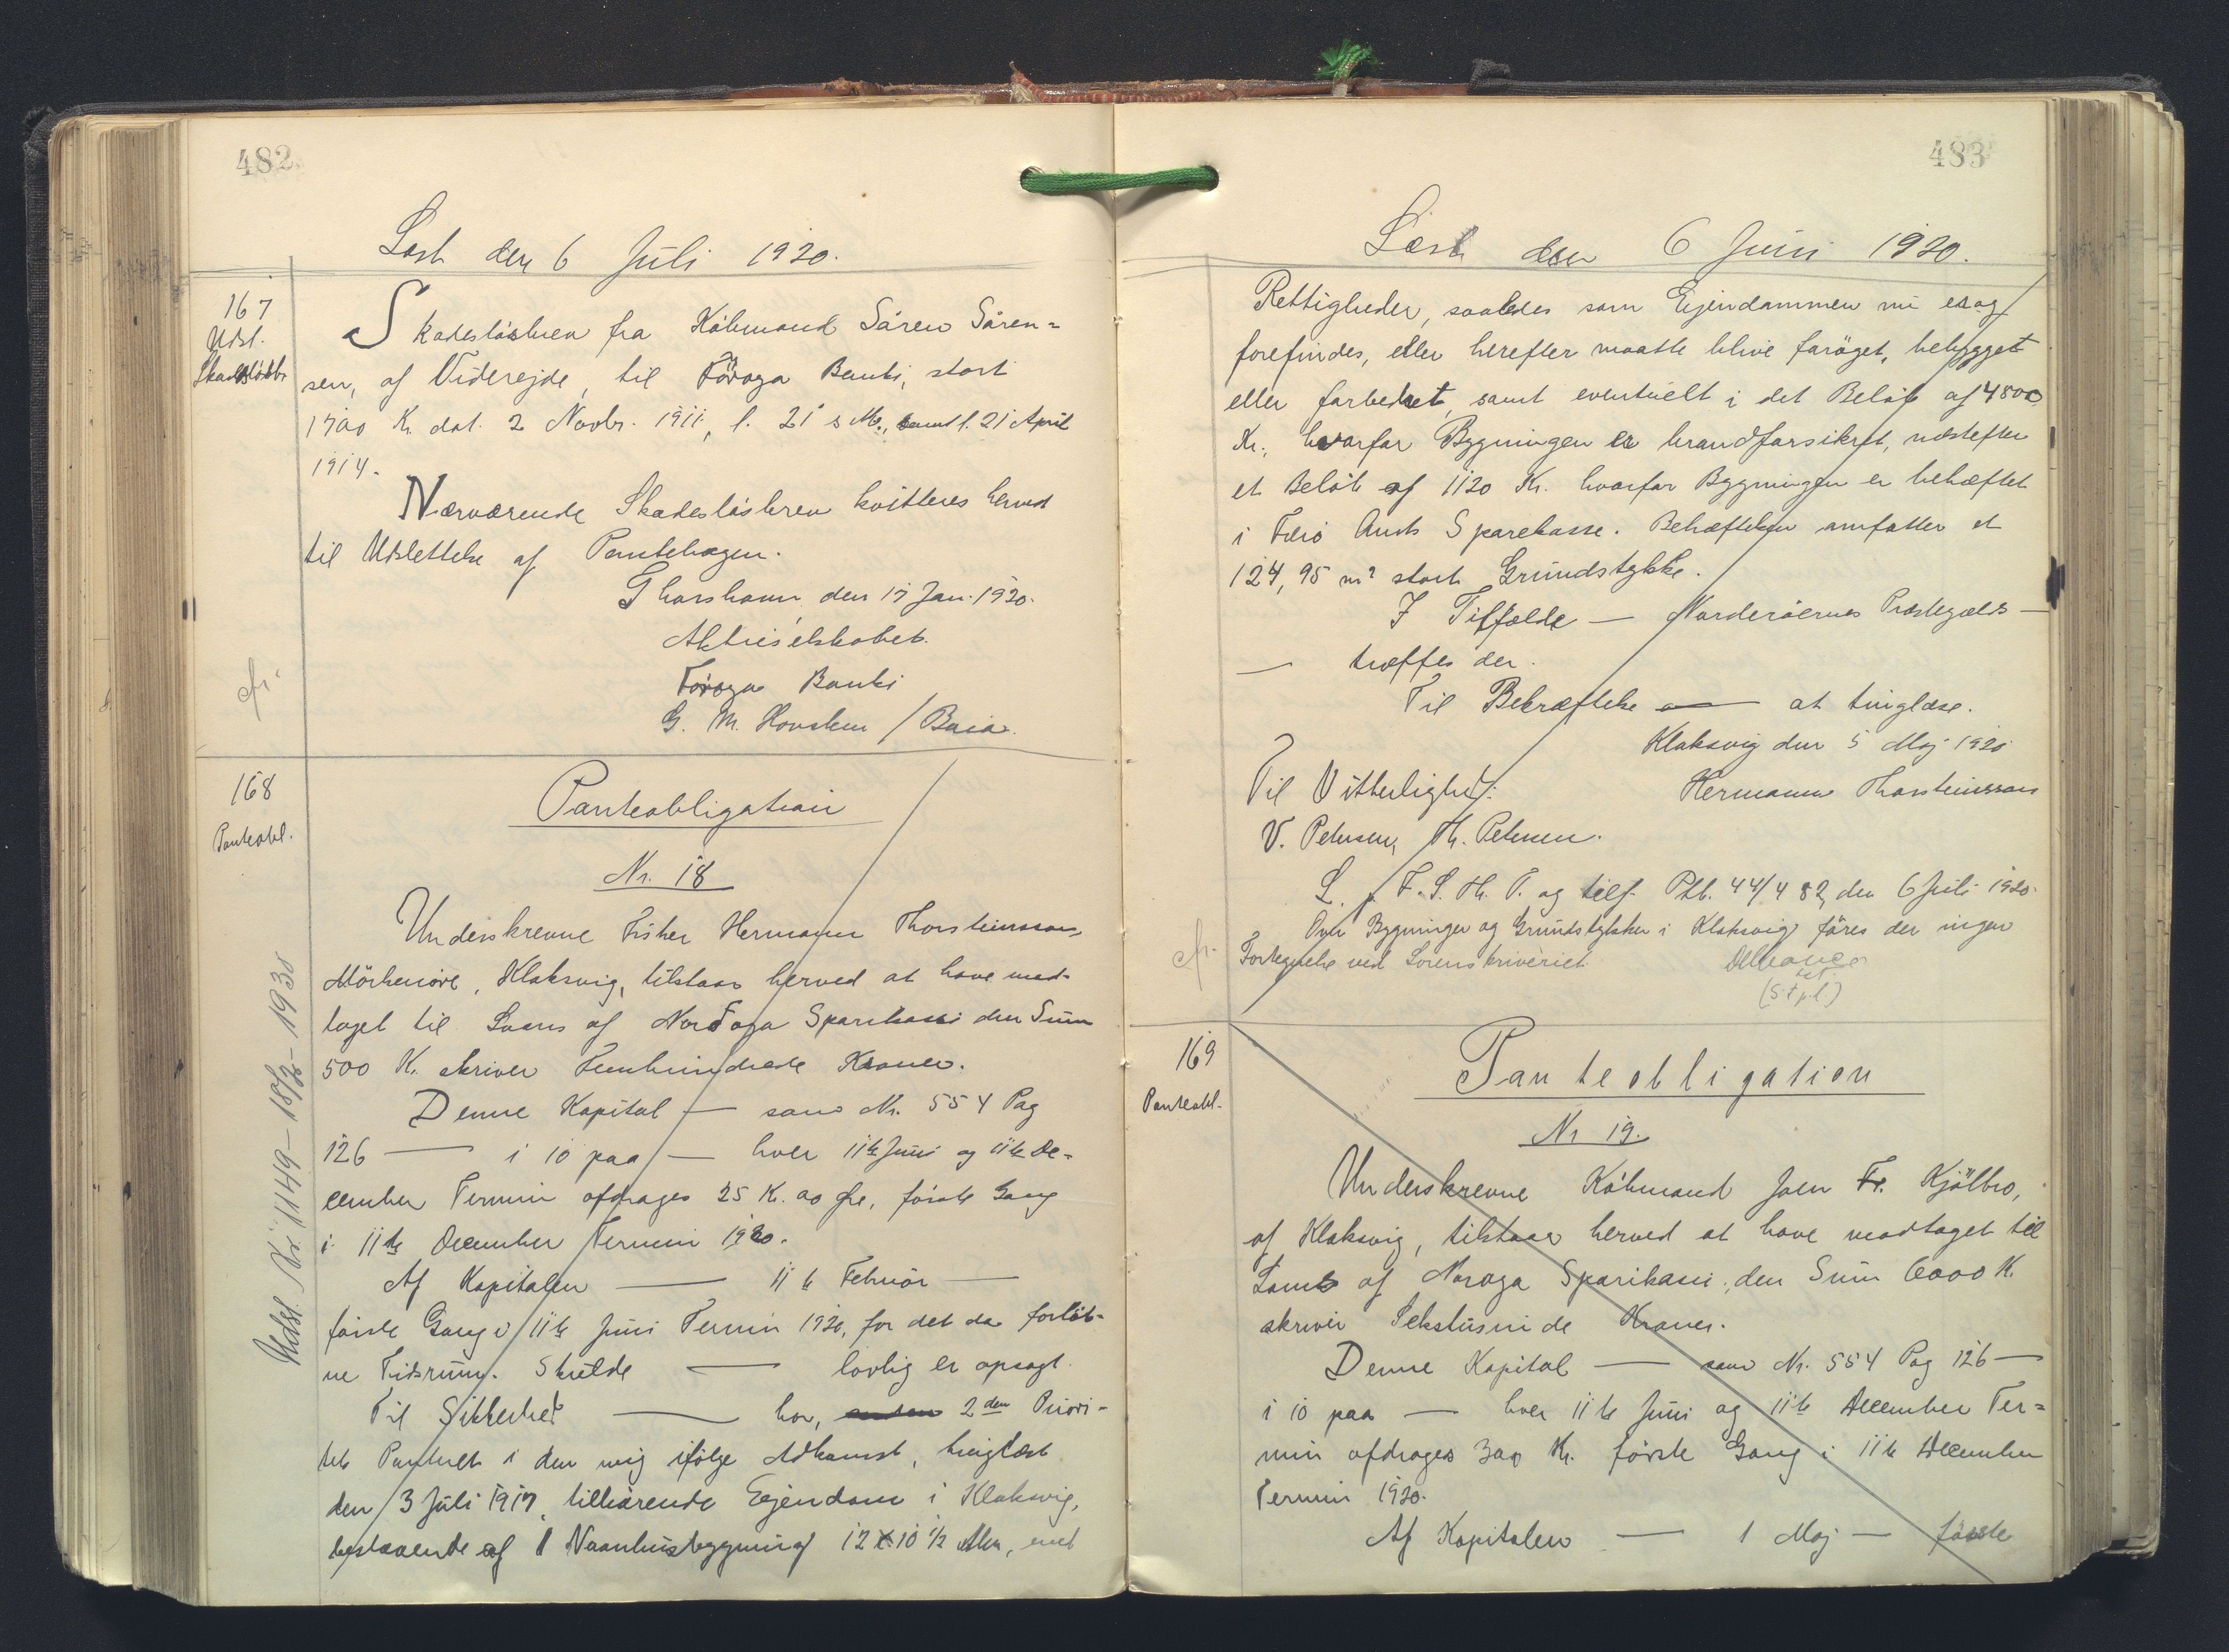 482
Læst den 6 Juli 1920.
167
Udsl.
Skadesløsbr.
Skadesløsbrev fra Købmand Sáren Sáren-
sen, af Viderejde, til Föroya Banki, stort
1700 Kr. dat. 2 Novbr. 1911, l. 21 s. M., samt l. 21 April
1914.
Nærværende Skadesløsbrev kvitteres herved
til Udslettelse af Pantebogen.
Thorshavn den 17 Jan. 1920.
Aktieselskabet.
Föroya Banki
G. M.
cfr.
168
Panteobl.
Panteobligation
Nr. 18
Underskrevne Fisker Hermann Thorsteinsson,
Klaksvig, tilstaar herved at have mod-
taget til Laans af Nordoya Sparikassi den Sum
500 Kr. skriver Femhundrede Kroner.
Denne Kapital — som Nr. 554 Pag
126 — i 10 paa — hver 11te Juni og 11te De-
cember Termin afdrages 25 Kr. 00 Øre, første Gang
i 11te December Termin 1920.
Af Kapitalen — 11te Februar —
første Gang i 11te Juni Termin 1920, for det da forløb-
ne Tidsrum. Skulde — lovlig er opsagt.
Til Sikkerhed — hov, 2den Priori-
tets Panteret i den mig ifølge Adkomst, tinglæst
den 3 Juli 1917, tilhørende Ejendom i Klaksvig,
bestaaende af 1 Vaanhusbygning 12 x 10 1/2 Alen, med
Udsl. Nr. 1149 - 18/2 - 1938
483
Læst den 6 Juni 1920.
Rettigheder, saaledes som Ejendommen nu er og
forefindes, eller herefter maatte blive forøget, bebygget
eller forbedret, samt eventuelt i det Beløb af 4800
Kr., hvorfor Bygningen er brandforsikret, næstefter
et Beløb af 1120 Kr. hvorfor Bygningen er behæftet
i Færø Amts Sparekasse. Behæftelsen omfatter et
124,95 m² stort Grundstykke.
I Tilfælde — Norderøernes Præstegælds —
— træffes der.
Til Bekræftelse — at tinglæse.
Klaksvig den 5 Maj 1920
Til Vitterlighed: Hermann Thorsteinsson
V. Petersen, Th. Petersen.
L. p. F. S. Th. T. og tilf. Ptb. 44/482, den 6 Juli 1920.
Over Bygninger og Grundstykker i Klaksvig føres der ingen
cfr. Fortegnelse ved Sorenskriveriet.
cst.
(S.t.p.l.)
169
Panteobl.
Panteobligation
Nr 19.
Underskrevne Købmand Joen Fr. Kjölbro,
af Klaksvig, tilstaar herved at have modtaget til
Laans af Noroya Sparikassi, den Sum 6000 Kr.
skriver Sekstusinde Kroner.
Denne Kapital — som Nr. 554 Pag 126 —
i 10 paa — hver 11te Juni og 11te December Ter-
min afdrages 300 Kr. første Gang i 11te December
Termin 1920.
Af Kapitalen — 1 Maj — første